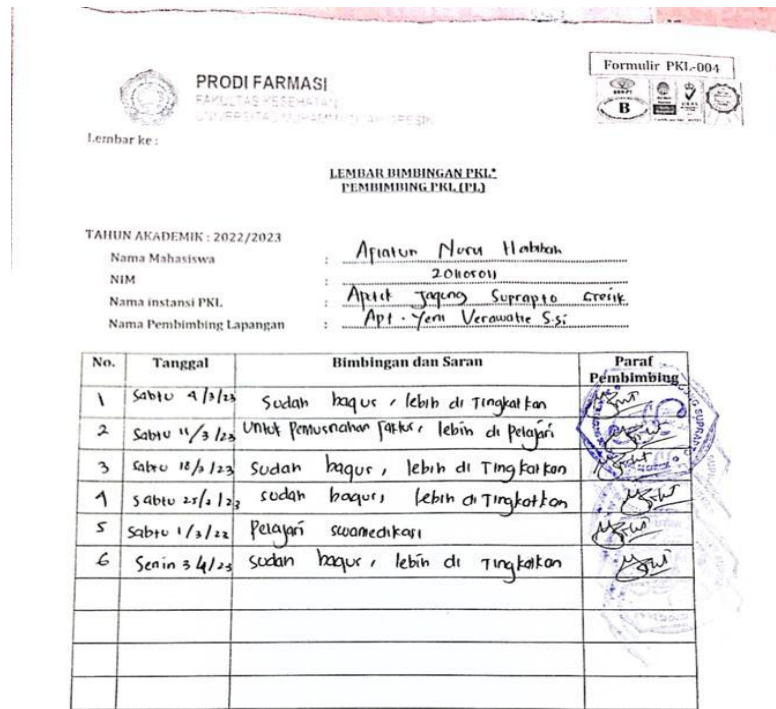 Formulir PKL-004
PRODI FARMASI
FAKULTAS KESEHATAN
UNIVERSITAS MUHAMMADIYAH GRESIK
B
Lembar ke :
LEMBAR BIMBINGAN PKL*
PEMBIMBING PKL (PL)
TAHUN AKADEMIK : 2022/2023
Nama Mahasiswa : Afiatun Nurul Habibah
NIM :
Nama instansi PKL : Apotek Jagung Suprapto Gresik
Nama Pembimbing Lapangan : Apt. Yeni Verawatie S.si
No. Tanggal Bimbingan dan Saran Paraf Pembimbing
1 Sabtu 4/3/23 Sudah bagus, lebih di Tingkatkan
2 Sabtu 11/3/23 Untuk Pemusnahan faktur, lebih di Pelajari
3 Sabtu 18/3/23 Sudah bagus, lebih di Tingkatkan
4 Sabtu 25/3/23 Sudah bagus, lebih di Tingkatkan
5 Sabtu 1/3/23 Pelajari swamedikasi
6 Senin 3/4/23 Sudah bagus, lebih di Tingkatkan